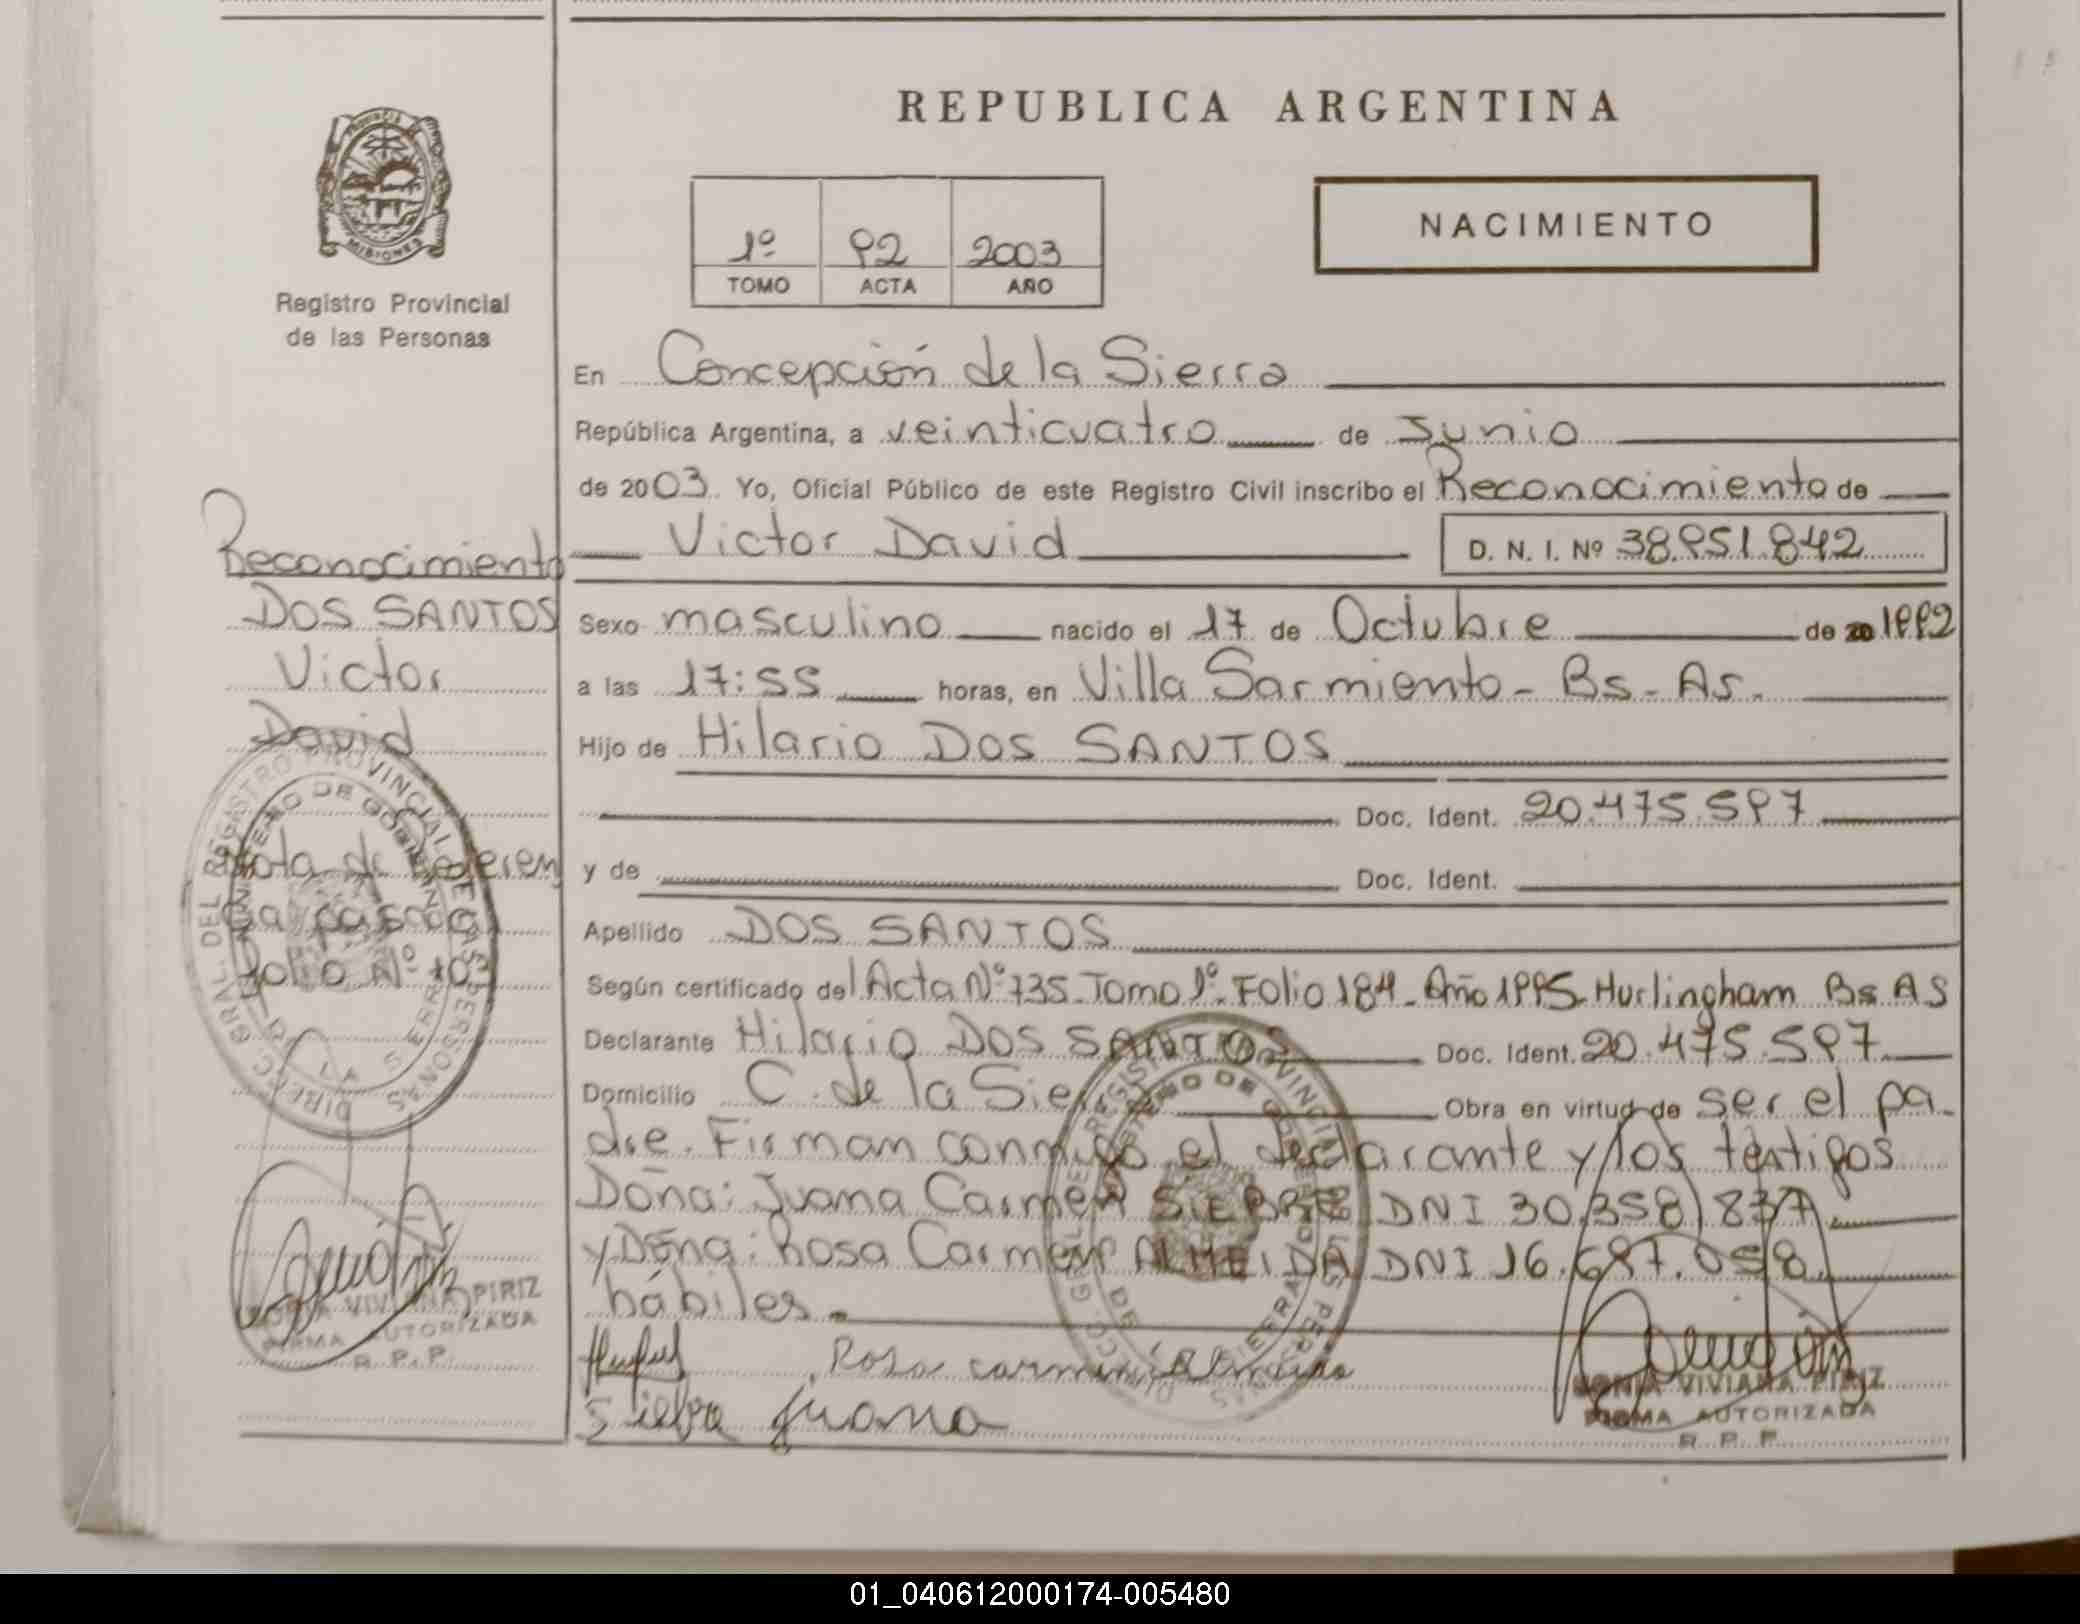 REPUBLICA ARGENTINA
PROVINCIA DE MISIONES
Registro Provincial
de las Personas
1º 92 2003
TOMO ACTA AÑO
NACIMIENTO
En Concepción de la Sierra
República Argentina, a veinticuatro de Junio
de 2003. Yo, Oficial Público de este Registro Civil inscribo el Reconocimiento de
Victor David D. N. I. Nº 38.951.842
Sexo masculino nacido el 17 de Octubre de 20 1992
a las 17:55 horas, en Villa Sarmiento - Bs - As.
Hijo de Hilario DOS SANTOS
Doc. Ident. 20.475.597
y de Doc. Ident.
Apellido DOS SANTOS
Según certificado del Acta Nº 735 - Tomo 1º - Folio 184 - Año 1995 - Hurlingham Bs AS
Declarante Hilario DOS SANTOS Doc. Ident. 20.475.597
Domicilio C. de la Sierra Obra en virtud de ser el pa-
dre. Firman conmigo el declarante y los testigos
Doña: Juana Carmen DNI 30.358.837
y Doña: Rosa Carmen ALMEIDA DNI 16.687.058
hábiles.
Rosa
Juana
SONIA VIVIANA PIRIZ
FIRMA AUTORIZADA
R. P. P.
Reconocimiento
DOS SANTOS
Victor
David
Nota de Referen
cia pasado
folio Nº 103
DIRECC. GRAL. DEL REGISTRO PROVINCIAL DE LAS PERSONAS
MINISTERIO DE GOBIERNO
SONIA VIVIANA PIRIZ
FIRMA AUTORIZADA
R. P. P.
01_040612000174-005480